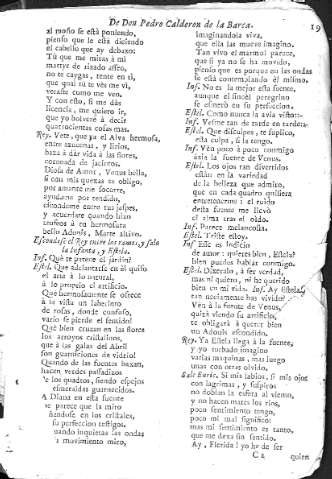 De Don Pedro Calderon de la Barca.
19
al moño se està poniendo,
pienso que le està diciendo
el cabello que ay debaxo:
Tù que me miras à mi
martyr de rizado asseo,
no te caygas, tente en ti,
que qual tù te vès me vì,
veràste como me veo.
Y con esto, si me dàs
licencia, me quiero ir,
que yo bolverè à decir
quatrocientas cosas mas.
Rey. Vete, que ya el Alva hermosa,
entre azucenas, y lirios,
baxa à dàr vida à las flores,
coronada de jacintos.
Diosa de Amor, Venus bella,
si con mis quexas te obligo,
por amante me socorre,
ayudame por rendido,
escondeme entre tus
y acuerdate quando
à tu hermosura
bello Adonis, Marte altivo.
Escondese el Rey entre los ramos, y sale
la Infanta, y Estela.
Inf. Què te parece el jardin?
Estel. Que adelantarse en èl quiso
el arte à lo natural,
à lo proprio el artificio.
Què hermosamente se ofrece
à la vista un laberinto
de rosas, donde confuso,
vario se pierde el sentido!
Què bien cruzan en las flores
los arroyos cristalinos,
que à las galas del Abril
son guarniciones de vidrio!
Quando de las fuentes baxan,
hacen verdes passadizos
los quadros, siendo espejos
esmeraldas guarnecidos.
A Diana en esta fuente
parece que la miro
ñandose en los cristales,
su perfeccion testigos.
uando inquietas las ondas
movimiento miro,
imaginandola viva,
que ella las mueve imagino.
Tan vivo el marmol parece,
que si ya no se ha movido,
pienso que es porque en las ondas
se està contemplando èl mismo.
Inf. No es la mejor esta fuente,
aunque el sincèl peregrino
se esmerò en su perfeccion.
Estel. Como nunca la avia visto
Inf. Vèsme tan de tarde en tarde
Estel. Que disculpes, te suplico,
esta culpa, si la tengo.
Inf. Vèn poco à poco conmigo
àzia la fuente de Venus.
Estel. Los ojos tan divertidos
estàn en la variedad
de la belleza que admiro,
que en cada quadro quisiera
entretenerme: el ruido
desta fuente me llevò
el alma tras el oìdo.
Inf. Parece melancolico.
Estel. Triste estoy.
Inf. Esse es indicio
de amor: quieres bien, Estela?
bien puedes hablar conmigo.
Estel. Dixeralo, à ser verdad,
mas ni quiero, ni he querido
bien en mi vida. Inf. Ay Estela,
tan neciamente has vivido!
Vèn à la fuente de Venus,
quizà viendo su artificio,
te obligarà à querer bien
su Adonis escondido.
Rey. Ya Estela llega à la fuente,
y yo turbado imagino
varias maquinas, mas luego
unas con otras olvido.
Sale Enric. Si mis labios, si mis ojos
con lagrimas, y suspiros
no doblan la esfera al viento,
y no hacen mares los rios,
poco sentimiento tengo,
poco mi mal significo:
mas mi sentimiento es tanto,
que me dexa sin sentido.
Ay, Flerida! yo he de ser
C 2
quien